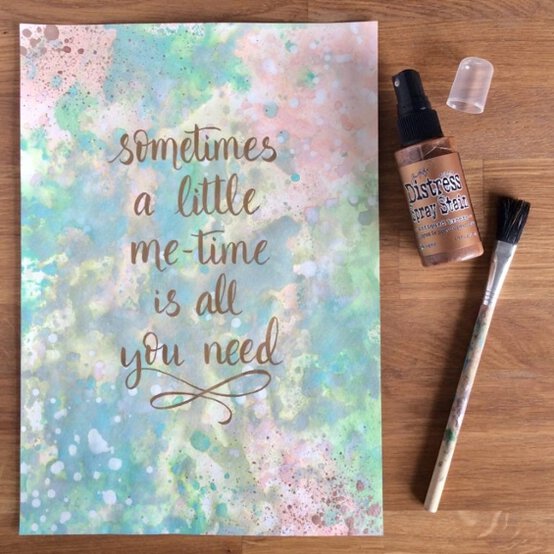 sometimes
a little
me-time
is all
you need
Distress
Spray Stain